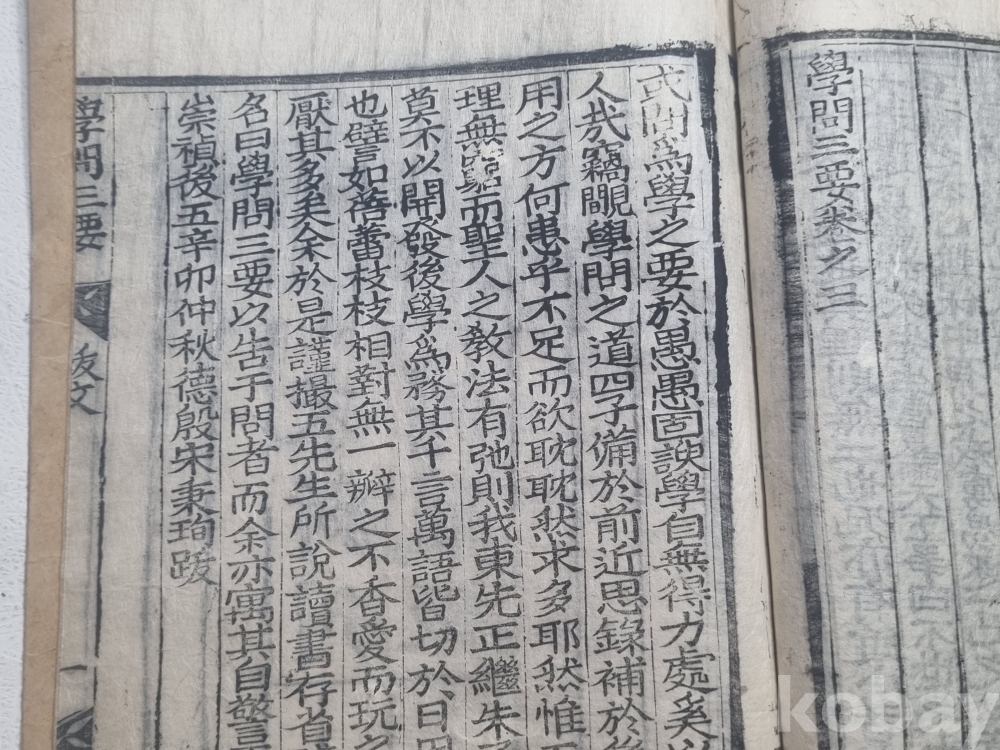 學問三要卷之三
或問爲學之要於愚愚固諛學自無得力處奚以
人哉竊覸學問之道四子備於前近思錄補於後
用之方何患乎不足而欲耽耽然求多耶然惟
理無窮而聖人之敎法有弛則我東先正繼朱
莫不以開發後學爲務其千言萬語皆切於日用
也譬如蓓蕾枝枝相對無一瓣之不香愛而玩之
厭其多矣余於是謹撮五先生所說讀書存省
名曰學問三要以告子問者而余亦寓其自警
崇禎後五辛卯仲秋德殷宋秉珣跋
學問三要
跋文
一
kobay